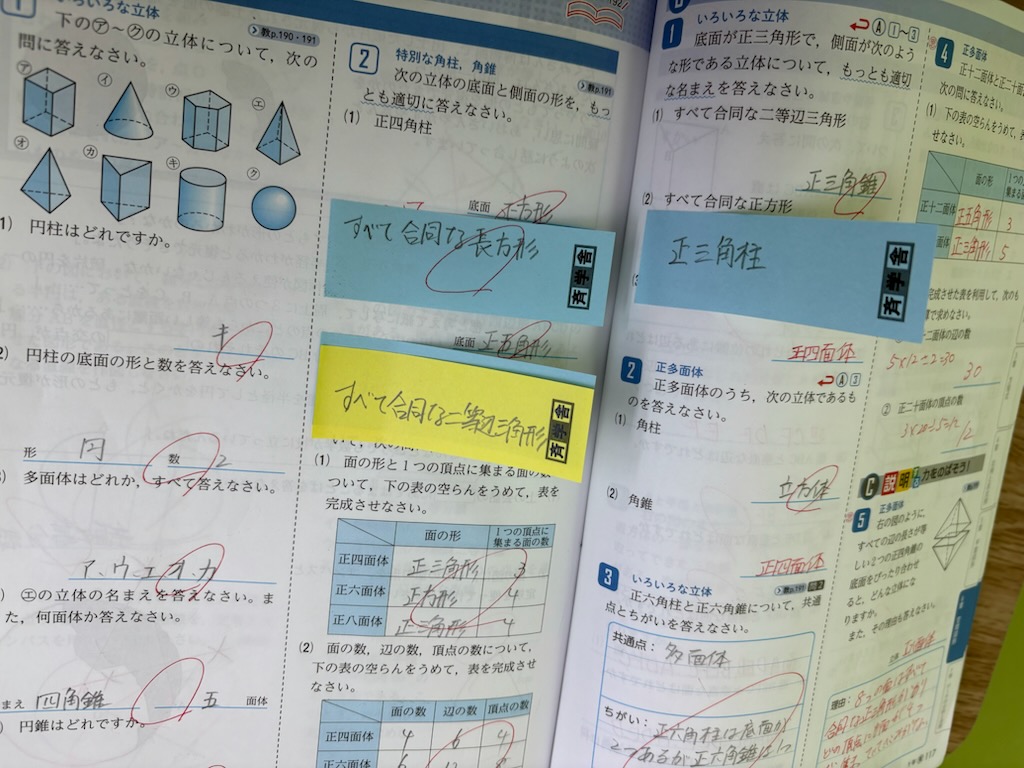 いろいろな立体
教p.190・191
下の㋐〜㋗の立体について，次の
問に答えなさい。
㋐
㋑
㋒
㋓
㋔
㋕
㋖
㋗
円柱はどれですか。
キ
円柱の底面の形と数を答えなさい。
形 円 数 2
多面体はどれか，すべて答えなさい。
ア、ウ、エ、オ、カ
㋓の立体の名まえを答えなさい。ま
た，何面体か答えなさい。
まえ 四角錐 五 面体
円錐はどれですか。
2
特別な角柱，角錐
教p.191
次の立体の底面と側面の形を，もっ
とも適切に答えなさい。
(1) 正四角柱
底面 正方形
すべて合同な長方形
斉学舎
底面 正五角形
すべて合同な二等辺三角形
斉学舎
(1) 面の形と1つの頂点に集まる面の数
ついて，下の表の空らんをうめて，表を
完成させなさい。
面の形 1つの頂点に集まる面の数
正四面体 正三角形 3
正六面体 正方形 4
正八面体 正三角形 4
(2) 面の数，辺の数，頂点の数について，
下の表の空らんをうめて，表を完成させ
なさい。
面の数 辺の数 頂点の数
正四面体 4 6 4
正六面体
1
いろいろな立体
A 1〜3
底面が正三角形で，側面が次のよう
な形である立体について，もっとも適切
な名まえを答えなさい。
(1) すべて合同な二等辺三角形
正三角錐
(2) すべて合同な正方形
正三角柱
斉学舎
正四面体
2
正多面体
A 3
正多面体のうち，次の立体であるも
のを答えなさい。
(1) 角柱
立方体
(2) 角錐
正四面体
3
いろいろな立体
正六角柱と正六角錐について，共通
点とちがいを答えなさい。
共通点：多面体
ちがい：正六角柱は底面が
2つあるが正六角錐は1つ
4
正多面体
正十二面体と正二十面
次の問に答えなさい。
(1) 下の表の空らんをうめて，
せなさい。
面の形
正十二面体 正五角形 3
面体 正三角形 5
完成させた表を利用して，次のも
で求めなさい。
二面体の辺の数
5×12÷2=30
30
② 正二十面体の頂点の数
3×20÷5=12
12
C 説明力をのばそう!
5
正多面体
右の図のように，
すべての辺の長さが等
しい2つの正四角錐の
底面をぴったり合わせ
ると，どんな立体にな
りますか。
また，その理由も答えなさい。